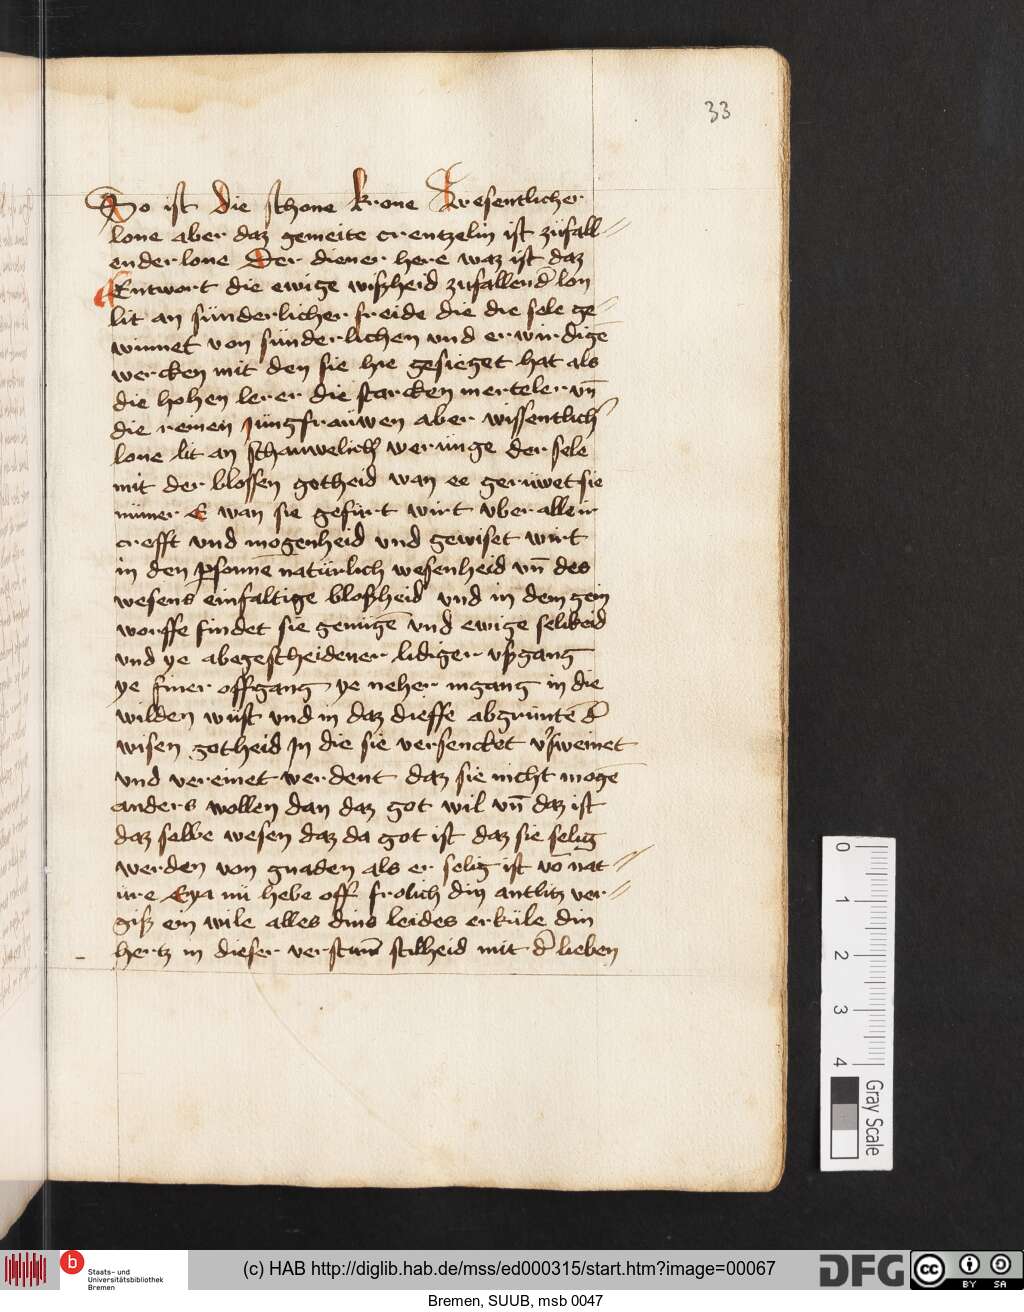 33
So ist die schone krone wesentlicher
lone aber daz gemeite crentzelin ist zufall=
ender lone Der diener here waz ist daz
Entwort die ewige wißheid zufallend̄ lon
lit an sünderlicher freide die die sele ge=
winnet von sünderlichen vnd erwirdigē
wercken mit den sie hie gesieget hat als
die hohen lerer die starcken merteler vn̄
die reinen Jungfrauwen aber wissentlich̄
lone lit an schauwelich̄ werunge der sele
mit der blossen gotheid wan ee geruwet sie
nümer E wan sie gefürt wirt vber alle ir
crefft vnd mogenheid vnd gewiset wirt
in den psonnē natürlich wesenheid vn̄ des
wesens einfaltige bloßheid vnd in dem gein
worffe findet sie genügē vnd ewige selikeid
vnd ye abegescheidener lidiger vßgang
ye finer offgang ye neher ingang in die
wilden wüst vnd in daz dieffe abgruntē d̄
wisen gotheid Jn die sie versencket v̉sweimet
vnd vereinet werdent daz sie nicht mogē
anders wollen dan daz got wil vn̄ daz ist
daz selbe wesen daz da got ist daz sie selig
werden von gnaden als er selig ist vō nat=
ure Eya nu hebe off frolich din antlitz ver=
giß ein wile alles dins leides erküle din
hertz in dieser stilheid mit d̄ lieben
0
1
2
3
4
Gray Scale
b
Staats- und
Universitätsbibliothek
Bremen
(c) HAB http://diglib.hab.de/mss/ed000315/start.htm?image=00067
DFG
cc BY SA
Bremen, SUUB, msb 0047